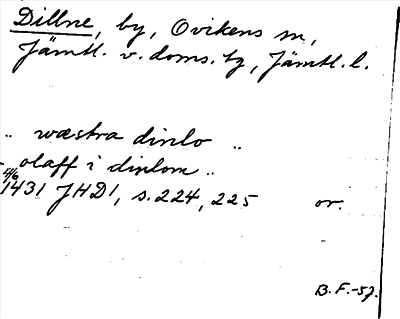 Dillne, by, Ovikens sn,
Jämtl. v. doms. tg, Jämtl. l.
.. wæstra dinlo ..
- olaff i dinlom ..
4/6 1431 JHD1, s. 224, 225 or.
B. F. -57.